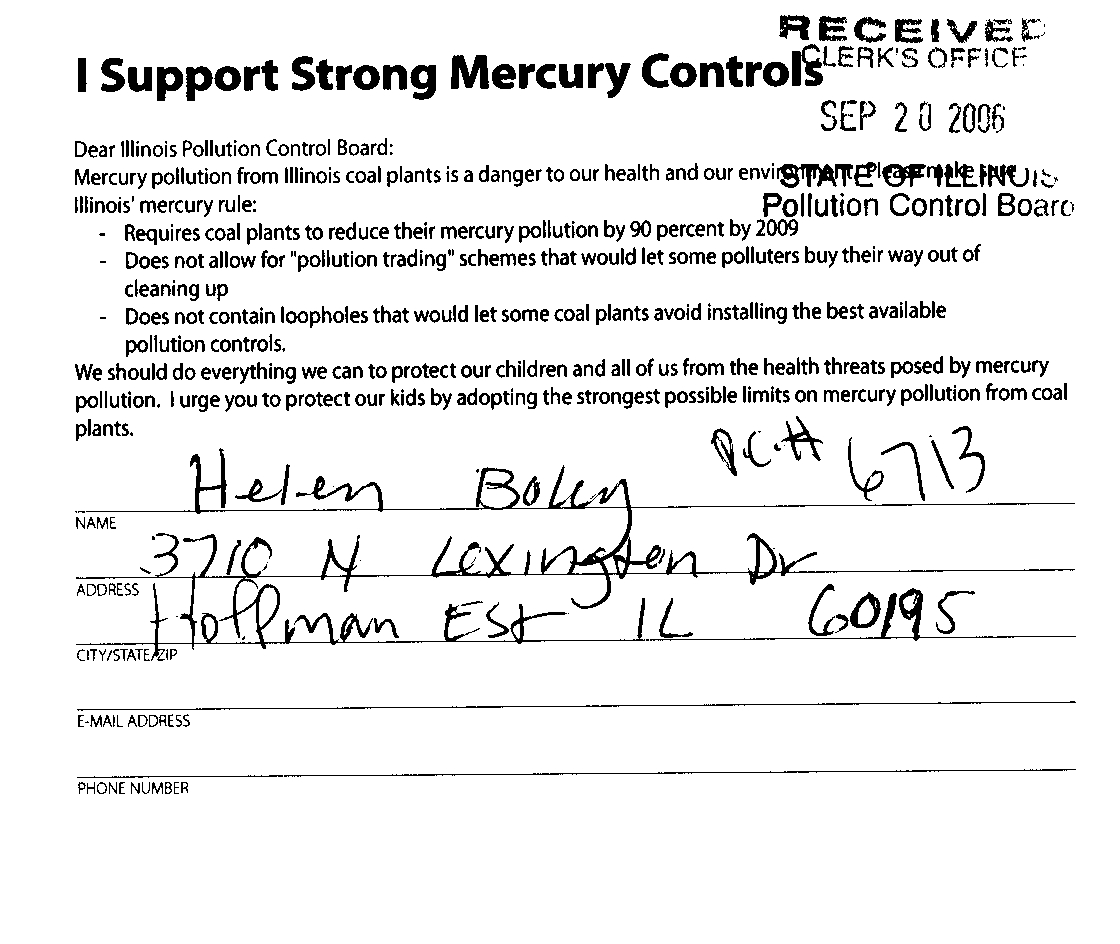 RECEIVED
CLERK'S OFFICE
I Support Strong Mercury Controls
SEP 20 2006
Dear Illinois Pollution Control Board:
Mercury pollution from Illinois coal plants is a danger to our health and our environment. Please make sure
STATE OF ILLINOIS
Illinois' mercury rule:
Pollution Control Board
- Requires coal plants to reduce their mercury pollution by 90 percent by 2009
- Does not allow for "pollution trading" schemes that would let some polluters buy their way out of
cleaning up
- Does not contain loopholes that would let some coal plants avoid installing the best available
pollution controls.
We should do everything we can to protect our children and all of us from the health threats posed by mercury
pollution. I urge you to protect our kids by adopting the strongest possible limits on mercury pollution from coal
plants.
P.C.# 6713
Helen Boley
NAME
3710 N Lexington Dr
ADDRESS
Hoffman Est IL 60195
CITY/STATE/ZIP
E-MAIL ADDRESS
PHONE NUMBER